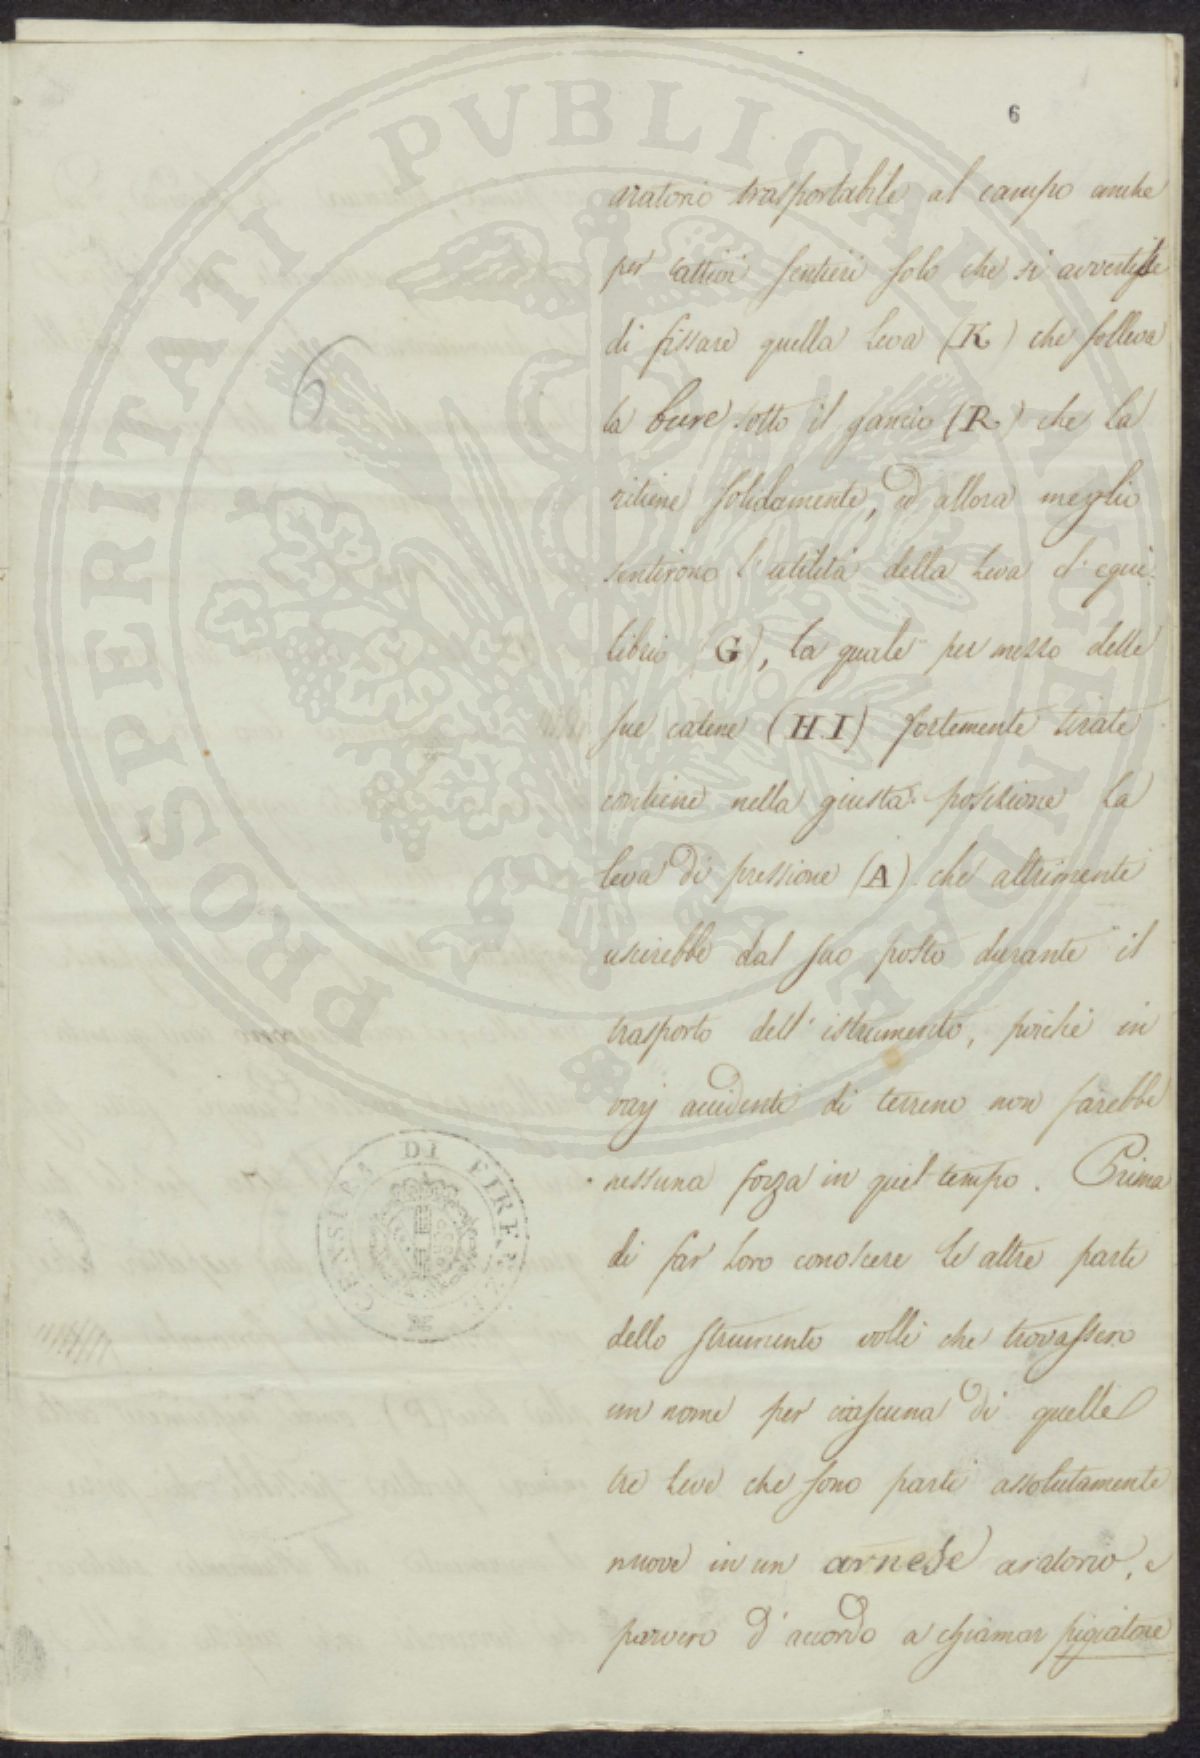 6
6
aratorio trasportabile al campo anche
per cattivi sentieri solo che si avvertisse
di fissare quella leva (K) che solleva
la bure sotto il gancio (R) che la
ritiene solidamente, ed allora meglio
sentirono l'utilità della leva d'equi-
librio (G), la quale per mezzo delle
sue catene (H I) fortemente tirate
contiene nella giusta posizione la
leva di pressione (A) che altrimenti
uscirebbe dal suo posto durante il
trasporto dell'istrumento, poichè in
varj accidenti di terreno non farebbe
nessuna forza in quel tempo. Prima
di far loro conoscere le altre parti
dello strumento volli che trovassero
un nome per ciascuna di quelle
tre leve che sono parti assolutamente
nuove in un arnese aratorio, e
parvero d'accordo a chiamar pigiatore
PROSPERITATI PVBLICAE AVGENDAE
CENSI DI FIRENZE